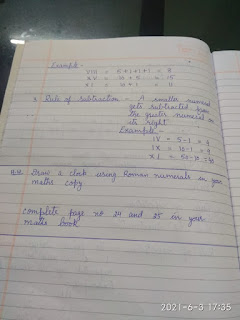 Example -
VIII = 5+1+1+1 = 8
XV = 10 + 5 = 15
XI = 10 + 1 = 11
* Rule of subtraction - A smaller numeral
gets subtracted from
the greater numeral on
its right
Example -
IV = 5-1 = 4
IX = 10-1 = 9
XL = 50-10 = 40
H.W. Draw a clock using Roman numerals in your
maths copy
Complete page no 24 and 25 in your
maths book
2021-6-3 17:35